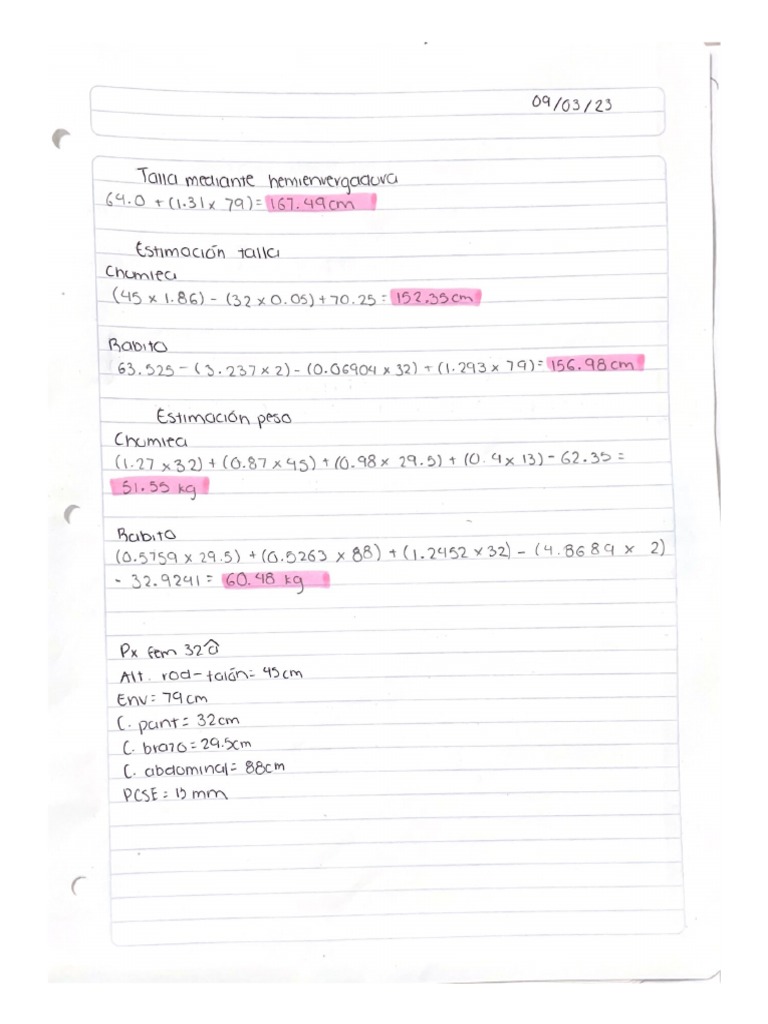 09/03/23
Talla mediante hemienvergadura
64.0 + (1.31 x 79) = 167.49cm
Estimación talla
Chumlea
(45 x 1.86) - (32 x 0.05) + 70.25 = 152.35cm
Rabito
63.525 - (3.237 x 2) - (0.06904 x 32) + (1.293 x 79) = 156.98cm
Estimación peso
Chumlea
(1.27 x 32) + (0.87 x 45) + (0.98 x 29.5) + (0.4 x 13) - 62.35 =
51.55 kg
Rabito
(0.5759 x 29.5) + (0.5263 x 88) + (1.2452 x 32) - (4.8689 x 2)
- 32.9241 = 60.48 kg
Px fem 32
Alt. rod-talón = 45cm
Env = 79cm
C. pant = 32cm
C. brazo = 29.5cm
C. abdominal = 88cm
PCSE = 13 mm